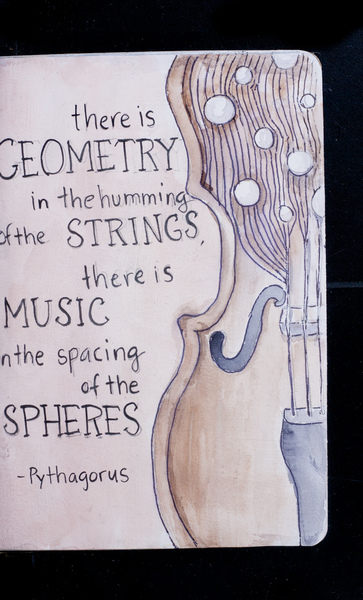 there is
GEOMETRY
in the humming
of the STRINGS,
there is
MUSIC
in the spacing
of the
SPHERES
-Pythagorus